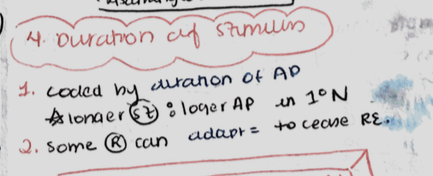 4. Duration of stimulus
1. coded by duration of AP
longer (St) : loger AP in 1° N
2. some (R) can adapt = to cease RE.